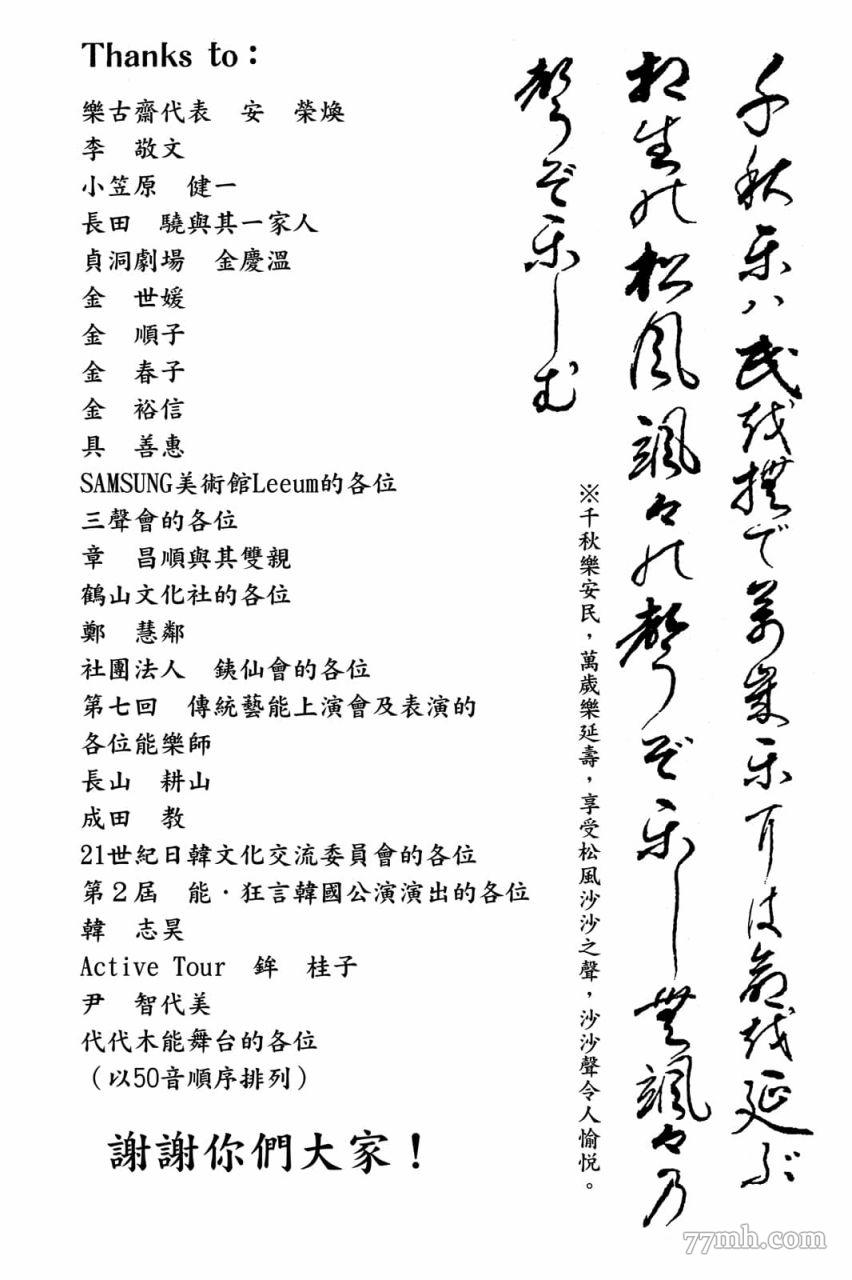 Thanks to：
樂古齋代表　安　榮煥
李　敬文
小笠原　健一
長田　驍與其一家人
貞洞劇場　金慶溫
金　世媛
金　順子
金　春子
金　裕信
具　善惠
SAMSUNG美術館Leeum的各位
三聲會的各位
章　昌順與其雙親
鶴山文化社的各位
鄭　慧鄰
社團法人　銕仙會的各位
第七回　傳統藝能上演會及表演的
各位能樂師
長山　耕山
成田　教
21世紀日韓文化交流委員會的各位
第２屆　能・狂言韓國公演演出的各位
韓　志昊
Active Tour　鉾　桂子
尹　智代美
代代木能舞台的各位
（以50音順序排列）
謝謝你們大家！
千秋乐八民越撫で万歳乐尓は命越延ぶ
相生能松風颯々能聲ぞ乐し無颯々乃
聲ぞ乐しむ
※千秋樂安民，萬歲樂延壽，享受松風沙沙之聲，沙沙聲令人愉悅。
77mh.com